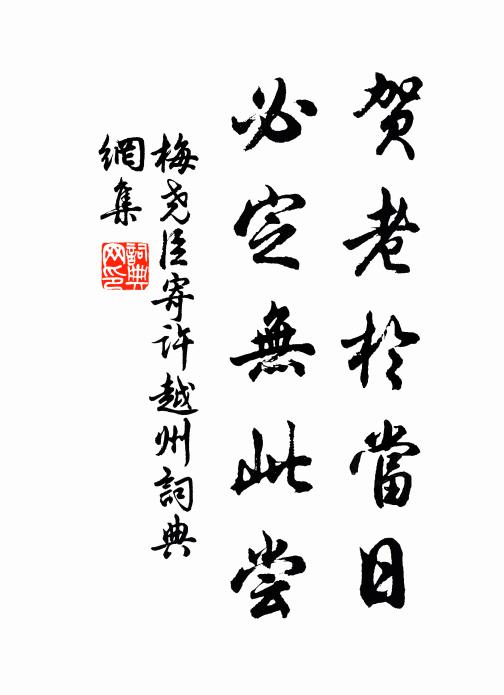 贺老於當日
必定無此尝
梅尧臣寄许越州詞典
網集
詞典
网印